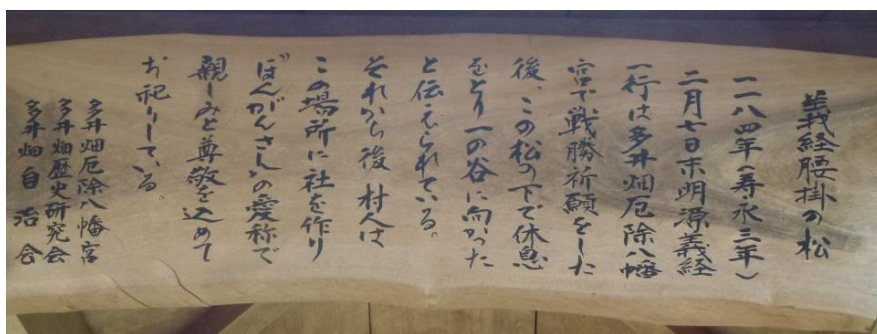 義経腰掛の松
一一八四年(寿永三年)
二月七日末明源義経
一行は多井畑厄除八幡
宮で戦勝祈願をした
後、この松の下で休息
をとり一の谷に向かった
と伝えられている。
それから後 村人は
この場所に社を作り
"ぼんがんさん"の愛称で
親しみと尊敬を込めて
お祀りしている。
多井畑厄除八幡宮
多井畑歴史研究会
多井畑自治会